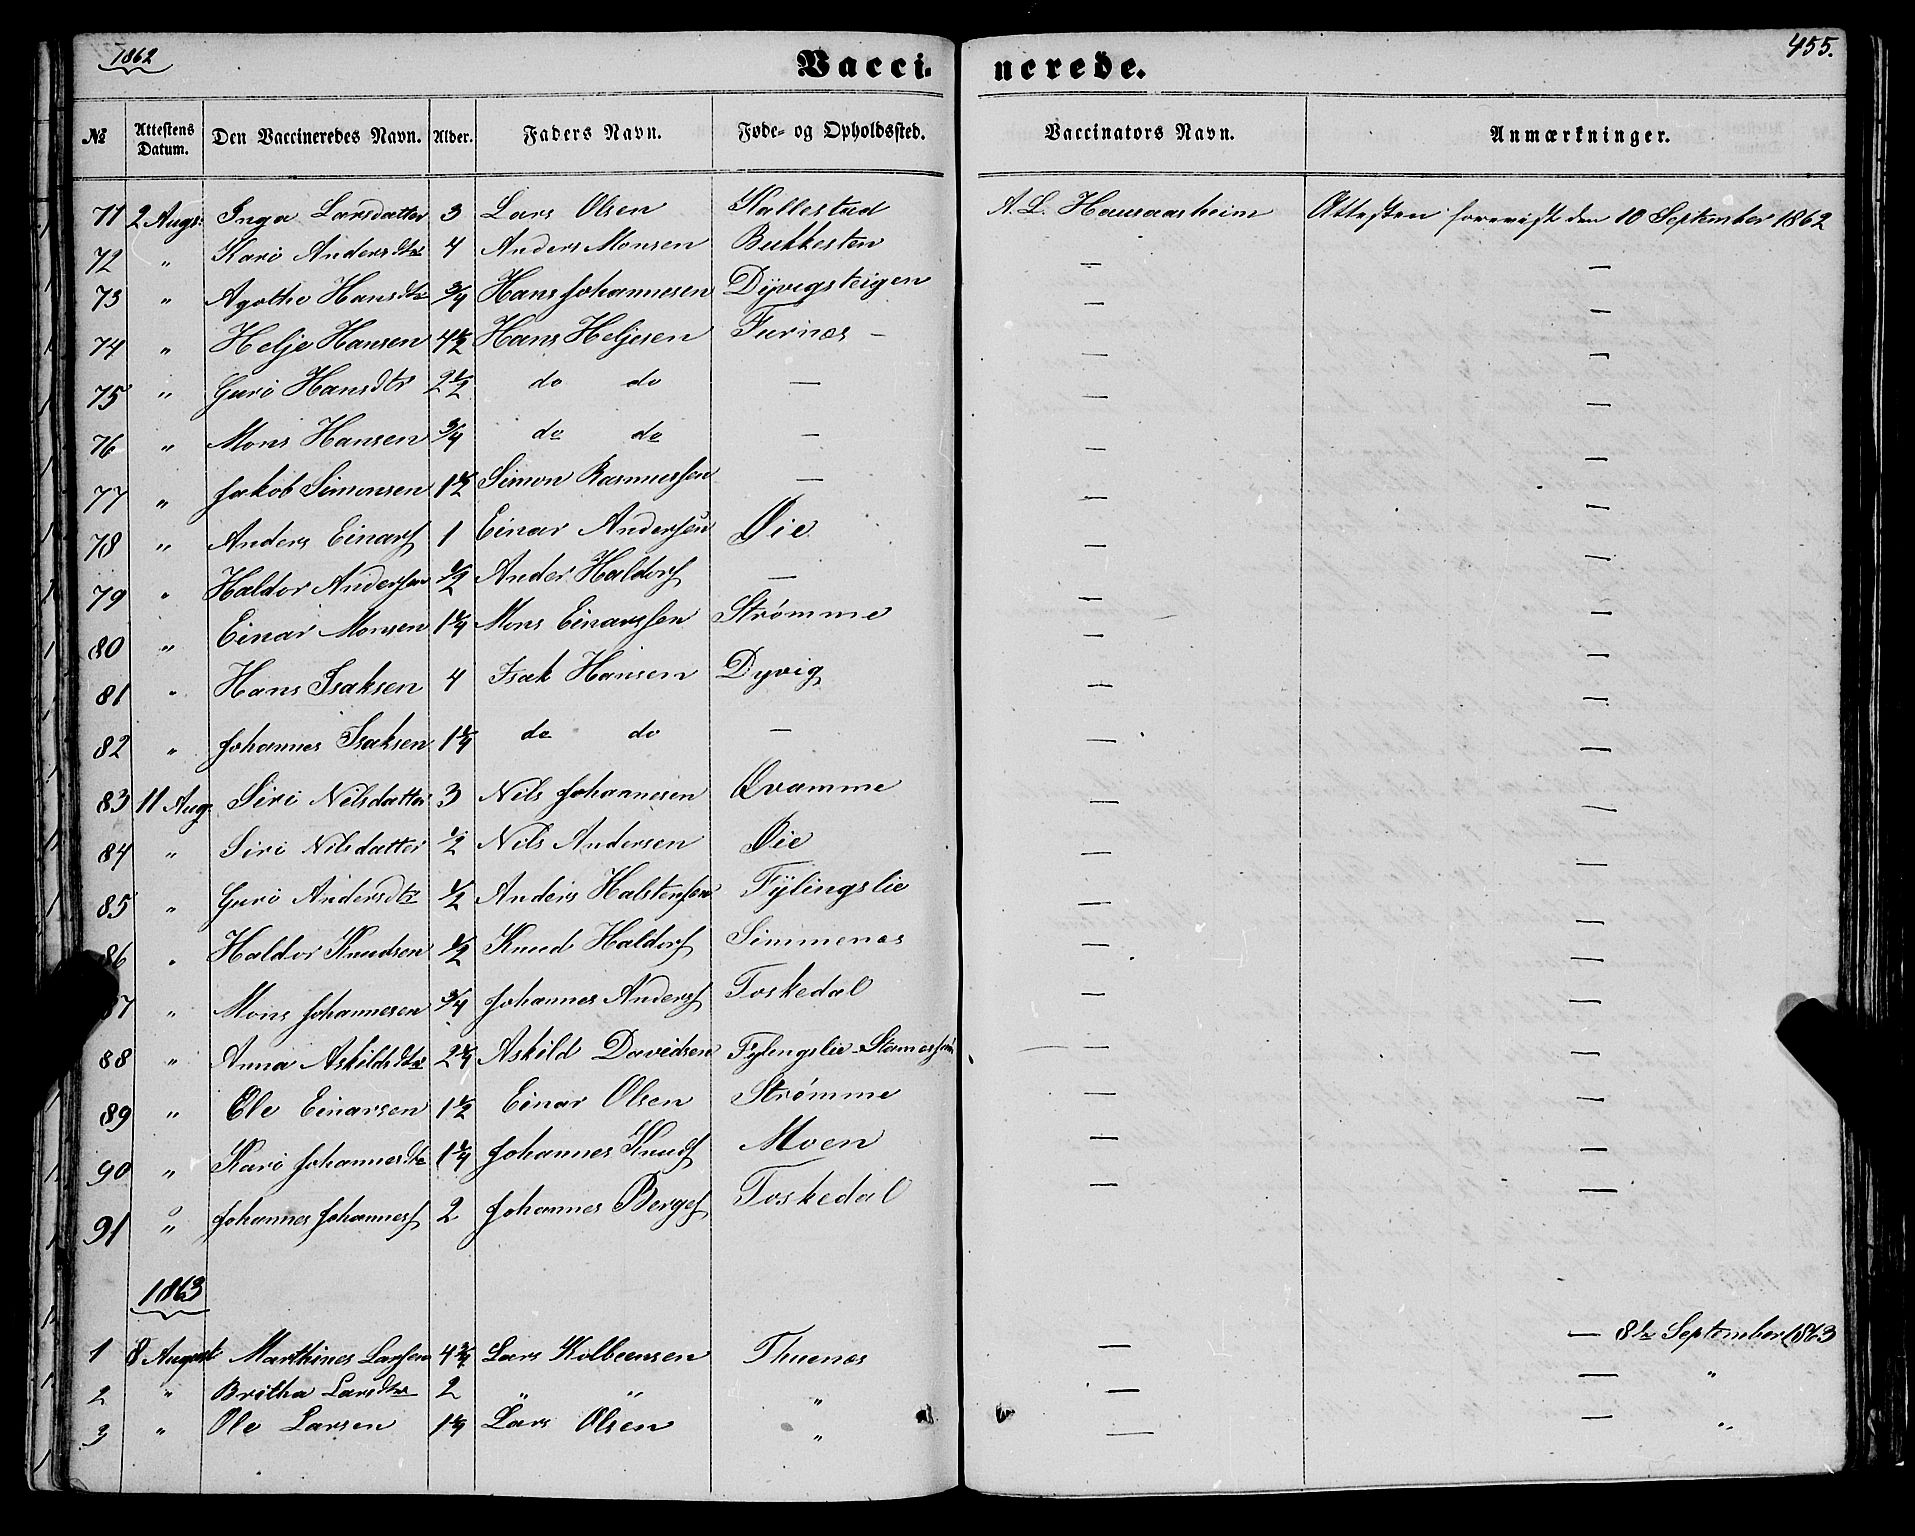 1862
Vacci-
nerede.
455.
№ Attestens Datum. Den Vaccineredes Navn. Alder. Faders Navn. Føde- og Opholdssted. Vaccinators Navn. Anmærkninger.
71 2 Augs: Inga Larsdatter 3 Lars Olsen Kallestad A. L. Attesten forevist den 10 September 1862
72 " Kari Andersdtr 4 Anders Monsen Bukkesten — —
73 " Agothe Hansdtr 3/4 Hans Johannesen Dÿvigsteigen — —
74 " Helje Hansen 4 1/2 Hans Heljesen Furnæs — — —
75 " Guri Hansdtr 2 1/2 do do — — —
76 " Mons Hansen 3/4 do do — — —
77 " Jakob Simonsen 1 1/2 Simon Rasmussen — — —
78 " Anders Einars 1 Einar Andersen Øie — —
79 " Haldor Andersen 1/2 Ander Haldors — — —
80 " Einar Monsen 1 1/4 Mons Einarssen Strømme — —
81 " Hans Isaksen 4 Isak Hansen Dyvig — —
82 " Johannes Isaksen 1 1/4 do do — — —
83 11 Aug. Siri Nilsdatter 3 Nils Johannesen Qvamme — —
84 " Siri Nilsdatter 1/2 Nils Andersen Øie — —
85 " Guri Andersdtr 1/2 Anders Halstensen Fÿlingslie — —
86 " Haldor Knudsen 1/2 Knud Haldors Simmenæs — —
87 " Mons Johannesen 3/4 Johannes Anders Toskedal — —
88 " Anna Askildsdtr 2 1/4 Askild Davidsen Fylingslie — —
89 " Ole Einarsen 1 1/2 Einar Olsen Strømme — —
90 " Kari Johannesdtr 1 1/4 Johannes Knuds Moen — —
91 " Johannes Johanness 2 Johannes Berges Toskedal — —
1863
1 8 August Marthines Larsen 4 3/4 Lars Kolbeensen Thuenæs — — 8de September 1863
2 " Britha Larsdtr 2 " " " — — "
3 " Ole Larsen 1 1/4 Lars Olsen " — — "